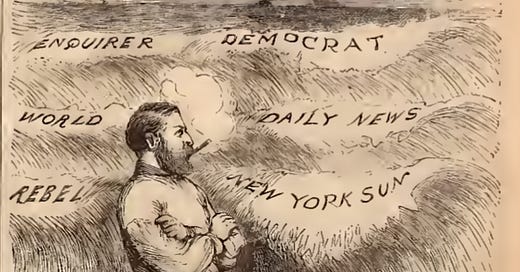 ENQUIRER DEMOCRAT
WORLD DAILY NEWS
REBEL NEW YORK SUN